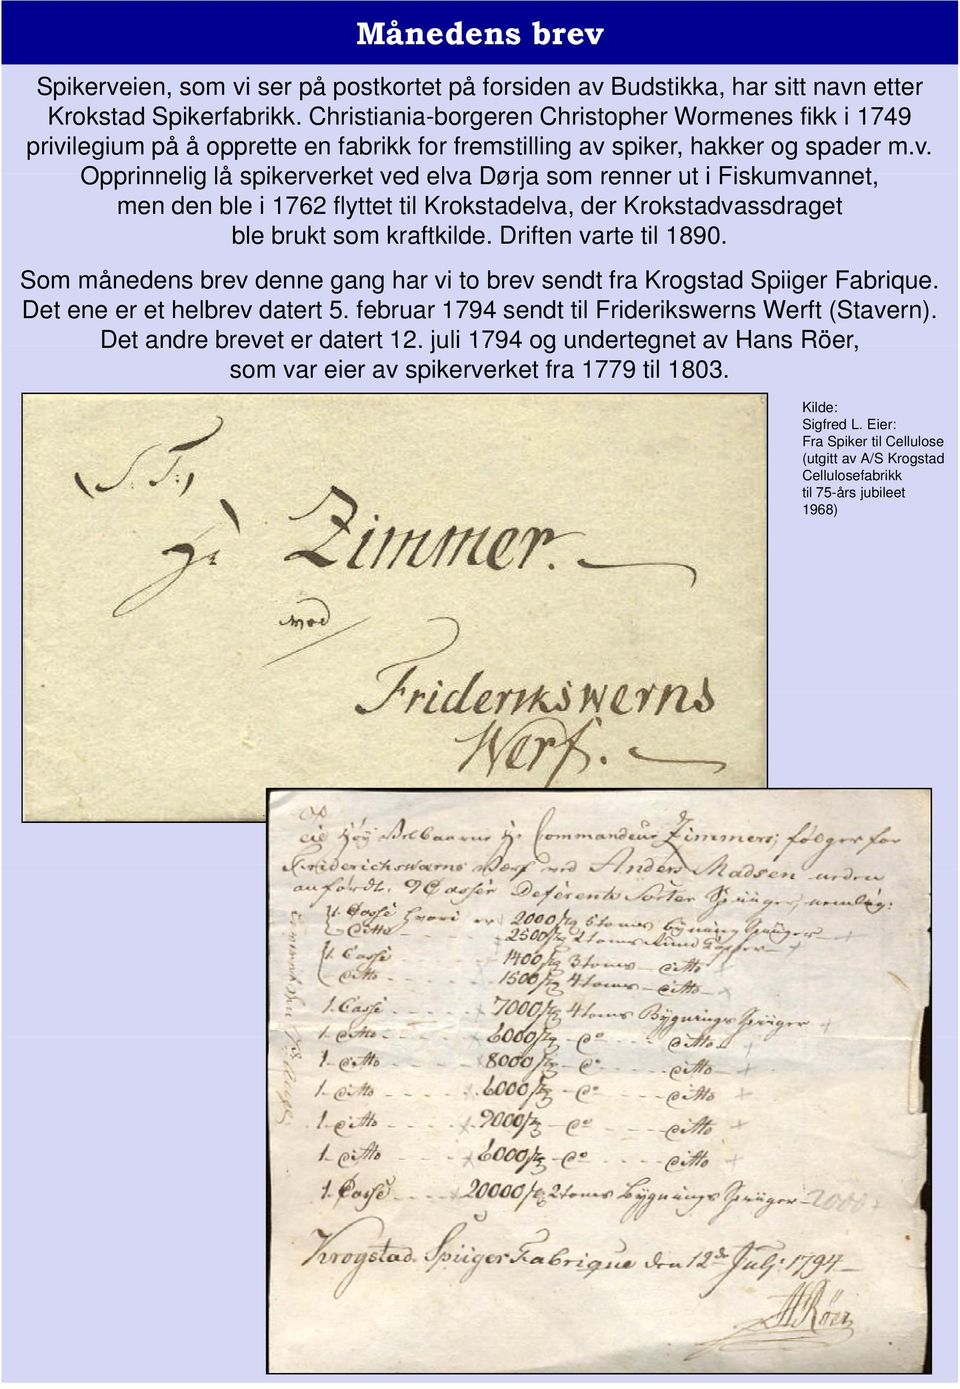 Månedens brev
Spikerveien, som vi ser på postkortet på forsiden av Budstikka, har sitt navn etter
Krokstad Spikerfabrikk. Christiania-borgeren Christopher Wormenes fikk i 1749
privilegium på å opprette en fabrikk for fremstilling av spiker, hakker og spader m.v.
Opprinnelig lå spikerverket ved elva Dørja som renner ut i Fiskumvannet,
men den ble i 1762 flyttet til Krokstadelva, der Krokstadvassdraget
ble brukt som kraftkilde. Driften varte til 1890.
Som månedens brev denne gang har vi to brev sendt fra Krogstad Spiiger Fabrique.
Det ene er et helbrev datert 5. februar 1794 sendt til Friderikswerns Werft (Stavern).
Det andre brevet er datert 12. juli 1794 og undertegnet av Hans Röer,
som var eier av spikerverket fra 1779 til 1803.
Kilde:
Sigfred L. Eier:
Fra Spiker til Cellulose
(utgitt av A/S Krogstad
Cellulosefabrikk
til 75-års jubileet
1968)
(S. T:)
Zimmer.
Friderikswerns
Werf.
Commandeur Zimmers; følger for
Friderichswærns Værf ved Anders Madsen neden
anførdt, 9 Casser Deferente Sorter Spiiger, nemlig:
1. Casse hvori er 2000 5 toms Bygning Spiiger
ditto 2500 2 toms
1. Casse 1400 3 toms ditto
ditto 1500 4 toms ditto
1. Casse 7000 4 toms Bygnings Spiiger
1 ditto 6000 do ditto
1 ditto 8000 do ditto
1 ditto 6000 do ditto
1 ditto 9000 do ditto
1 ditto 6000 do ditto
1 Casse 20000 2 toms Bygnings Spiiger 2000
Krogstad Spiiger Fabrique den 12de Julj: 1794
HRöer